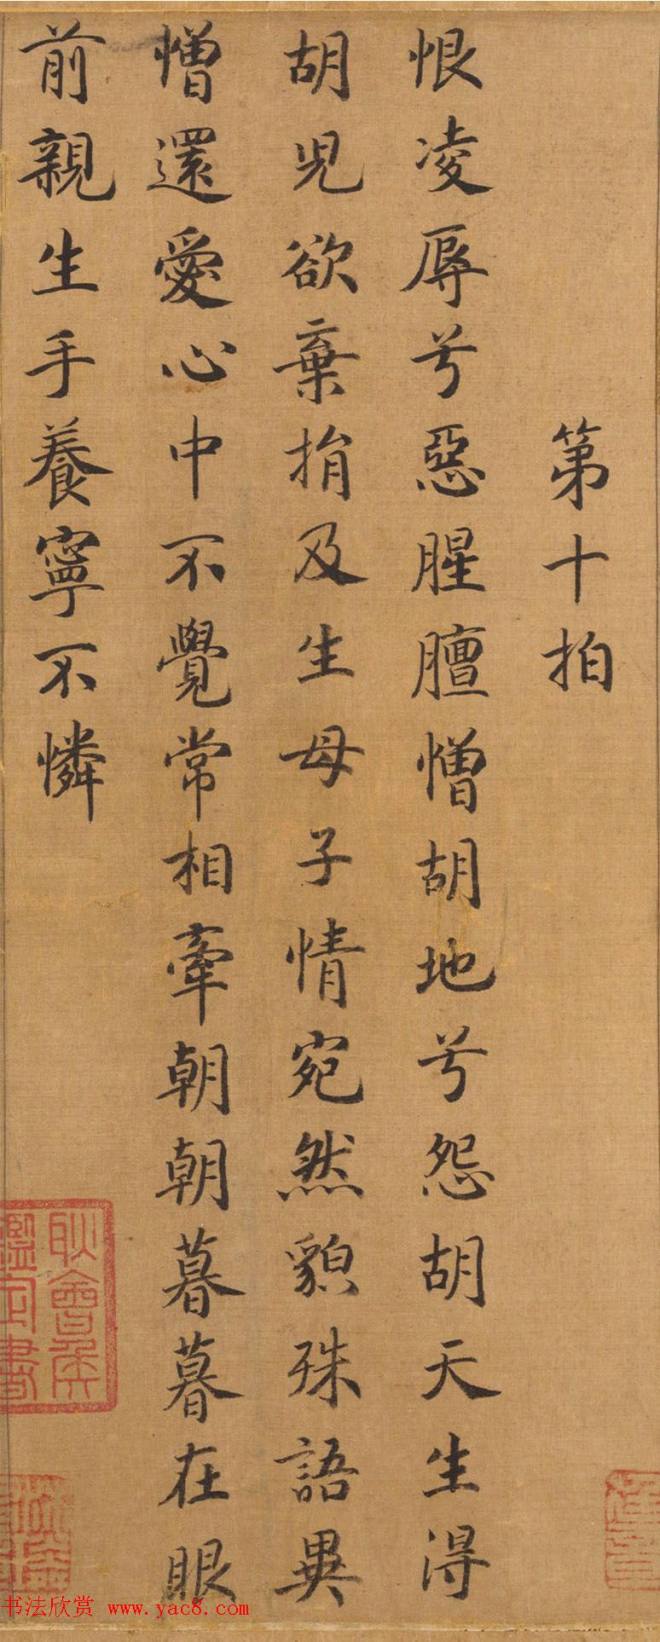 第十拍
恨凌辱兮惡腥膻憎胡地兮怨胡天生得
胡兒欲棄捐及生母子情宛然貌殊語異
憎還愛心中不覺常相牽朝朝暮暮在眼
前親生手養寧不憐
耿會侯
鑑定書
书法欣赏 www.yac8.com